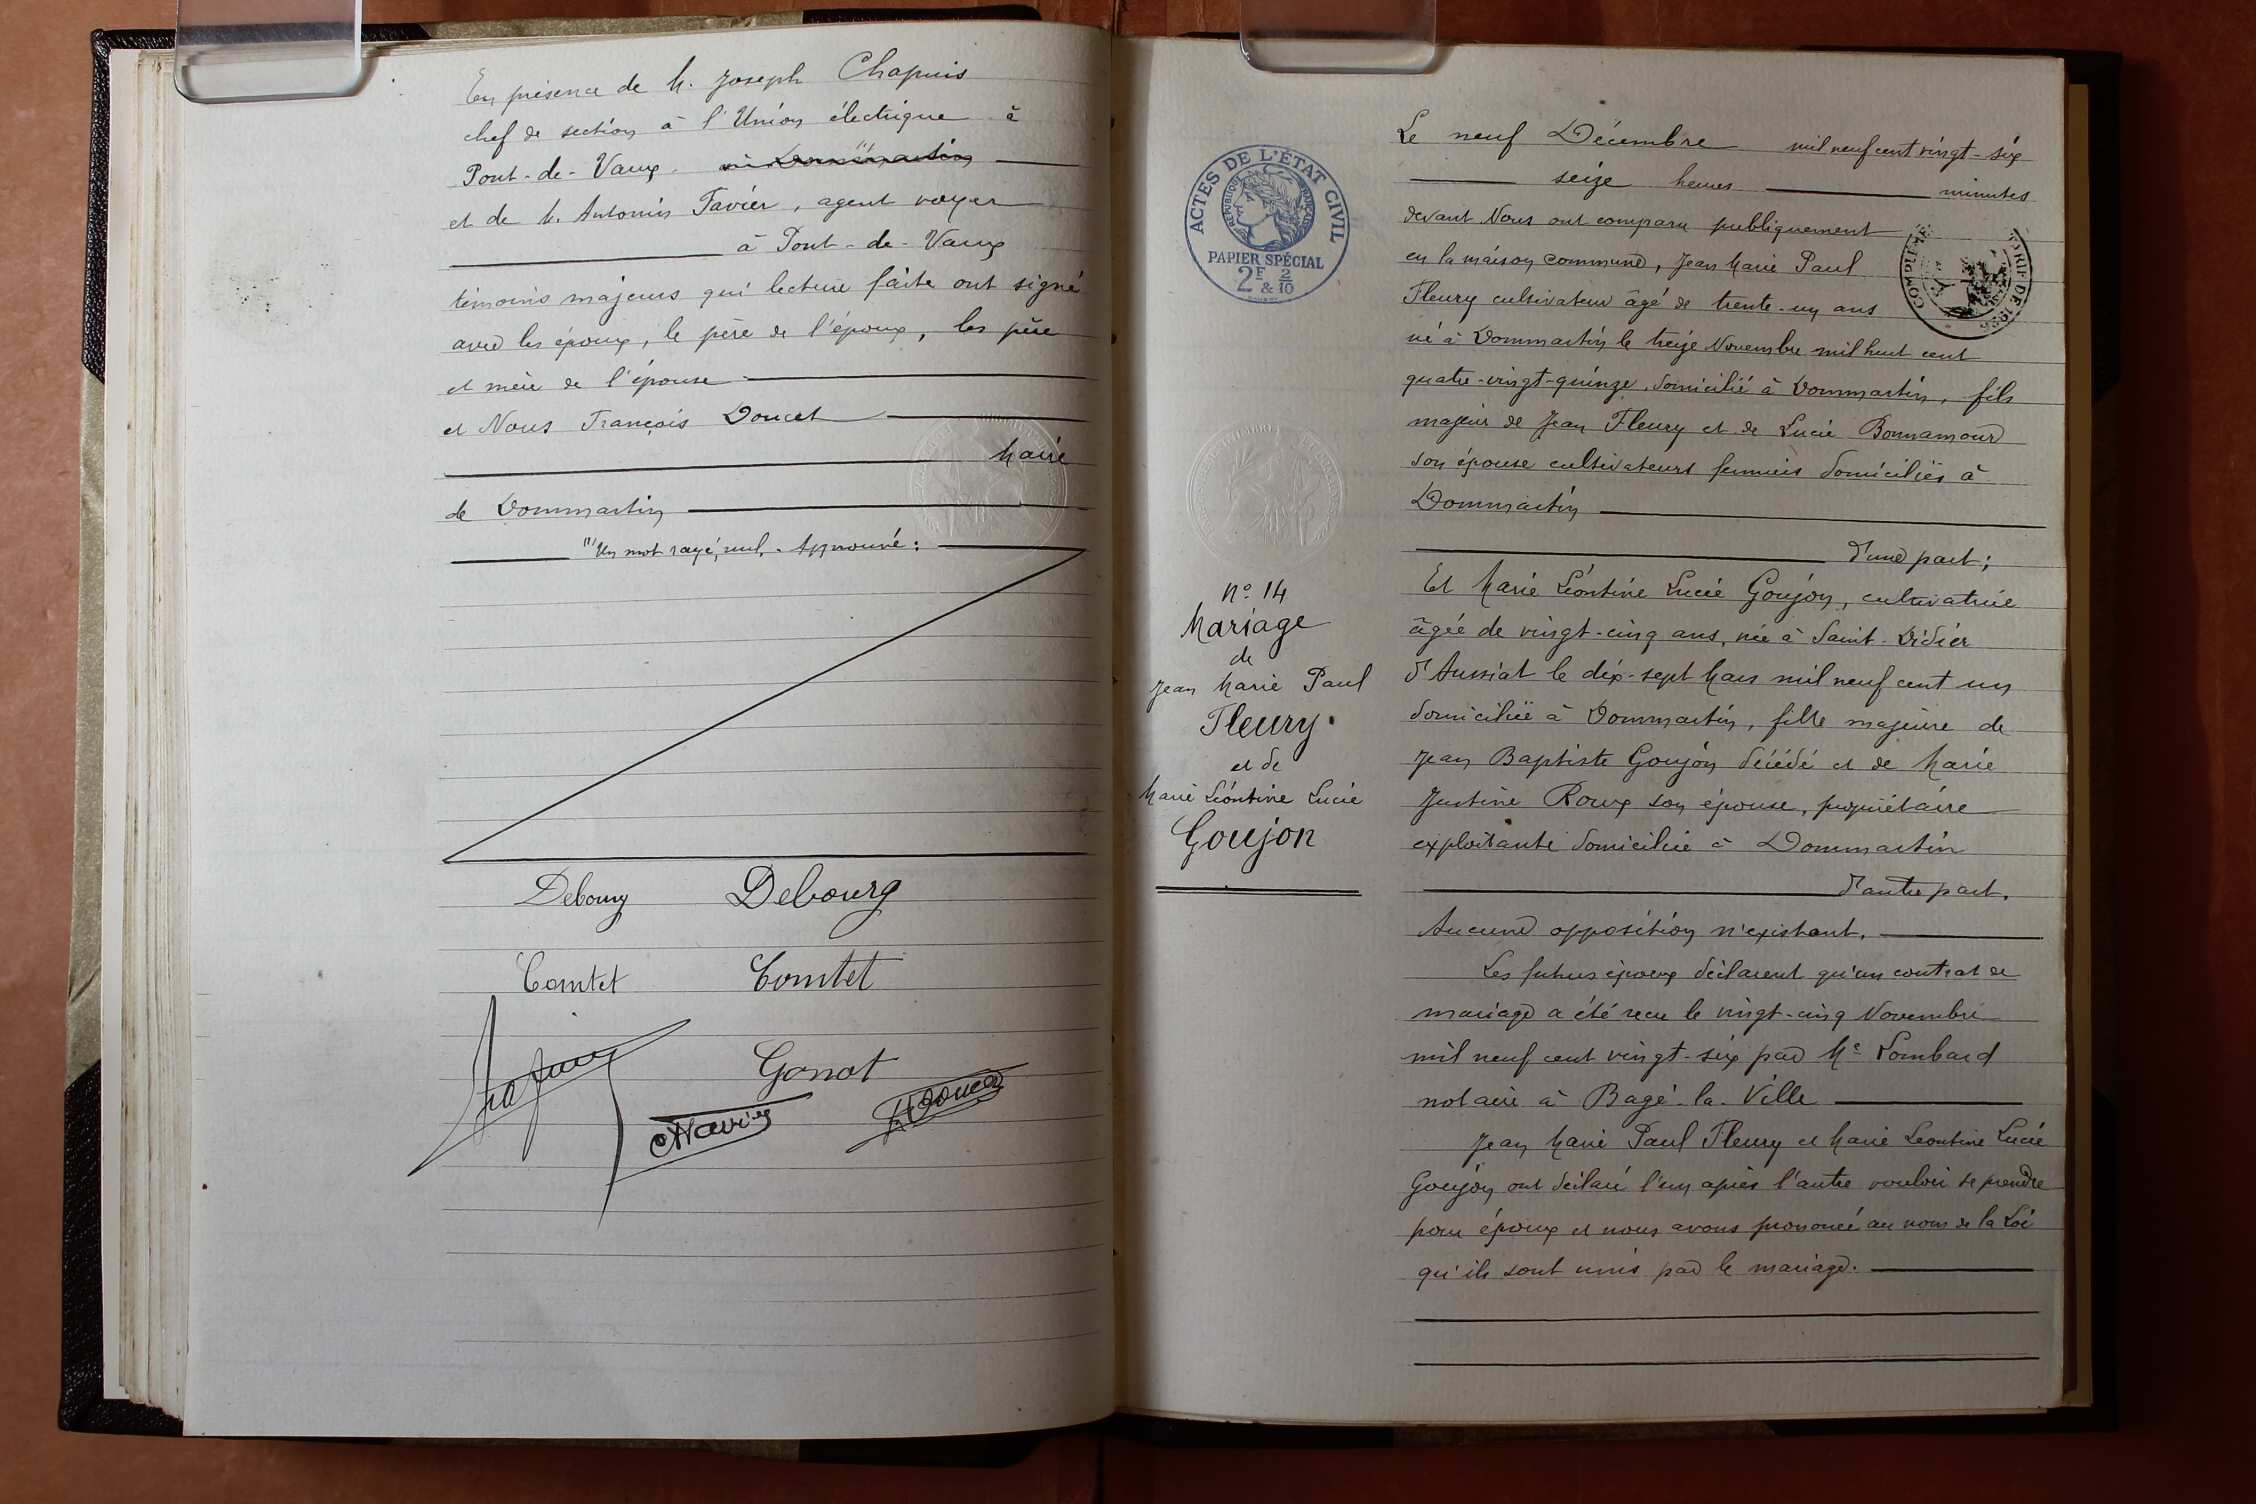 En présence de M. Joseph Chapuis
chef de section à l'Union électrique à
Pont-de-Vaux
et de M. Antonin Favier, agent voyer
à Pont-de-Vaux
témoins majeurs qui lecture faite ont signé
avec les époux, le père de l'époux, les père
et mère de l'épouse
et Nous François Doucet
Maire
de Dommartin
(1) Un mot rayé, nul. - Approuvé :
Debourg Debourg
Comtet Comtet
Gonnot
ACTES DE L'ÉTAT CIVIL
RÉPUBLIQUE FRANÇAISE
PAPIER SPÉCIAL
2F & 2/10
nº 14
Mariage
de
Jean Marie Paul
Fleury
et de
Marie Léontine Lucie
Goujon
Le neuf Décembre mil neuf cent vingt-six
seize heures minutes
devant Nous ont comparu publiquement
en la maison commune, Jean Marie Paul
Fleury cultivateur âgé de trente-un ans
né à Dommartin le treize Novembre mil huit cent
quatre-vingt-quinze, domicilié à Dommartin, fils
majeur de Jean Fleury et de Lucie Bonnamour
son épouse cultivateurs fermiers domiciliés à
Dommartin
d'une part ;
Et Marie Léontine Lucie Goujon, cultivatrice
âgée de vingt-cinq ans, née à Saint-Didier
d'Aussiat le dix-sept Mars mil neuf cent un
domiciliée à Dommartin, fille majeure de
Jean Baptiste Goujon décédé et de Marie
Justine Roux son épouse, propriétaire
exploitante domiciliée à Dommartin
d'autre part.
Aucune opposition n'existant.
Les futurs époux déclarent qu'un contrat de
mariage a été recu le vingt-cinq Novembre
mil neuf cent vingt-six par Me Lombard
notaire à Bagé-la-Ville
Jean Marie Paul Fleury et Marie Leontine Lucie
Goujon ont déclaré l'un après l'autre vouloir se prendre
pour époux et nous avons prononcé au nom de la Loi
qu'ils sont unis par le mariage.